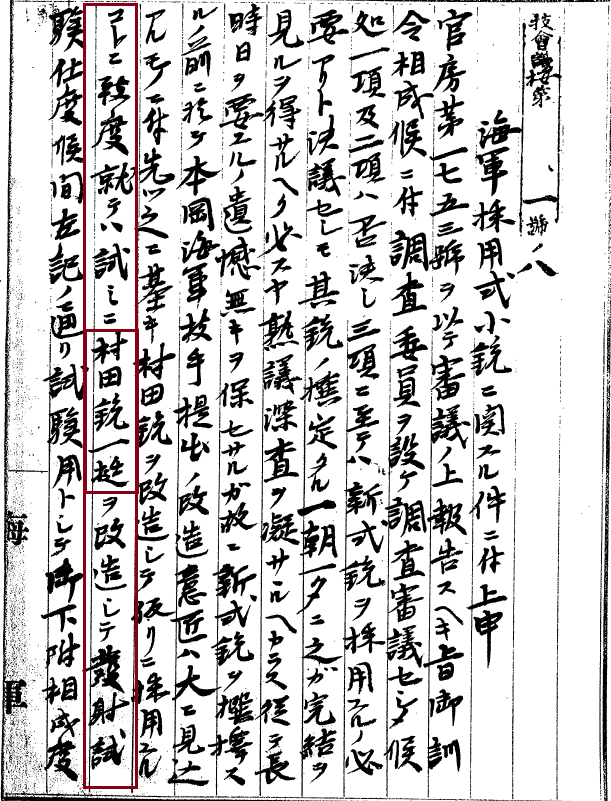 技會機秘第一號ノ八
海軍採用式小銃ニ関スル件ニ付上申
官房第一七五三號ヲ以テ審議ノ上報告スヘキ旨御訓
令相成候ニ付調査委員ヲ設ケ調査審議セシメ候
処一項及二項ハ否決シ三項ニ至テハ新式銃ヲ採用スルノ必
要アリト決議セシモ其銃ノ撰定タル一朝一夕ニ之カ完結ヲ
見ルヲ得サルヘク必スヤ熟議深査ヲ凝サヽルヘカラス従テ長
時日ヲ要スルノ遺憾無キヲ保セサルガ故ニ新式銃ヲ撰擇ス
ルノ前ニ於テ本岡海軍技手提出ノ改造意匠ハ大ニ見込
アルモノニ付先ツ之ニ基キ村田銃ヲ改造シテ仮リニ採用スル
コトニ致度就テハ試ミニ村田銃一挺ヲ改造シテ發射試
験仕度候間左記ノ通リ試験用トシテ御下附相成度
海軍